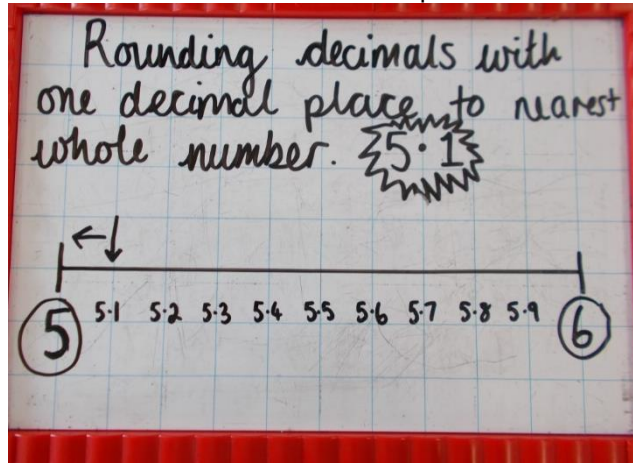 Rounding decimals with
one decimal place to nearest
whole number. 5·1
5 5·1 5·2 5·3 5·4 5·5 5·6 5·7 5·8 5·9 6